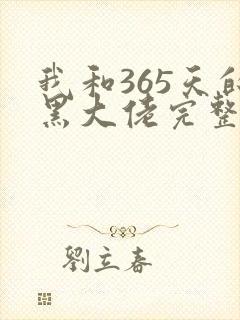 我和365天的
黑大佬完整
劉立春